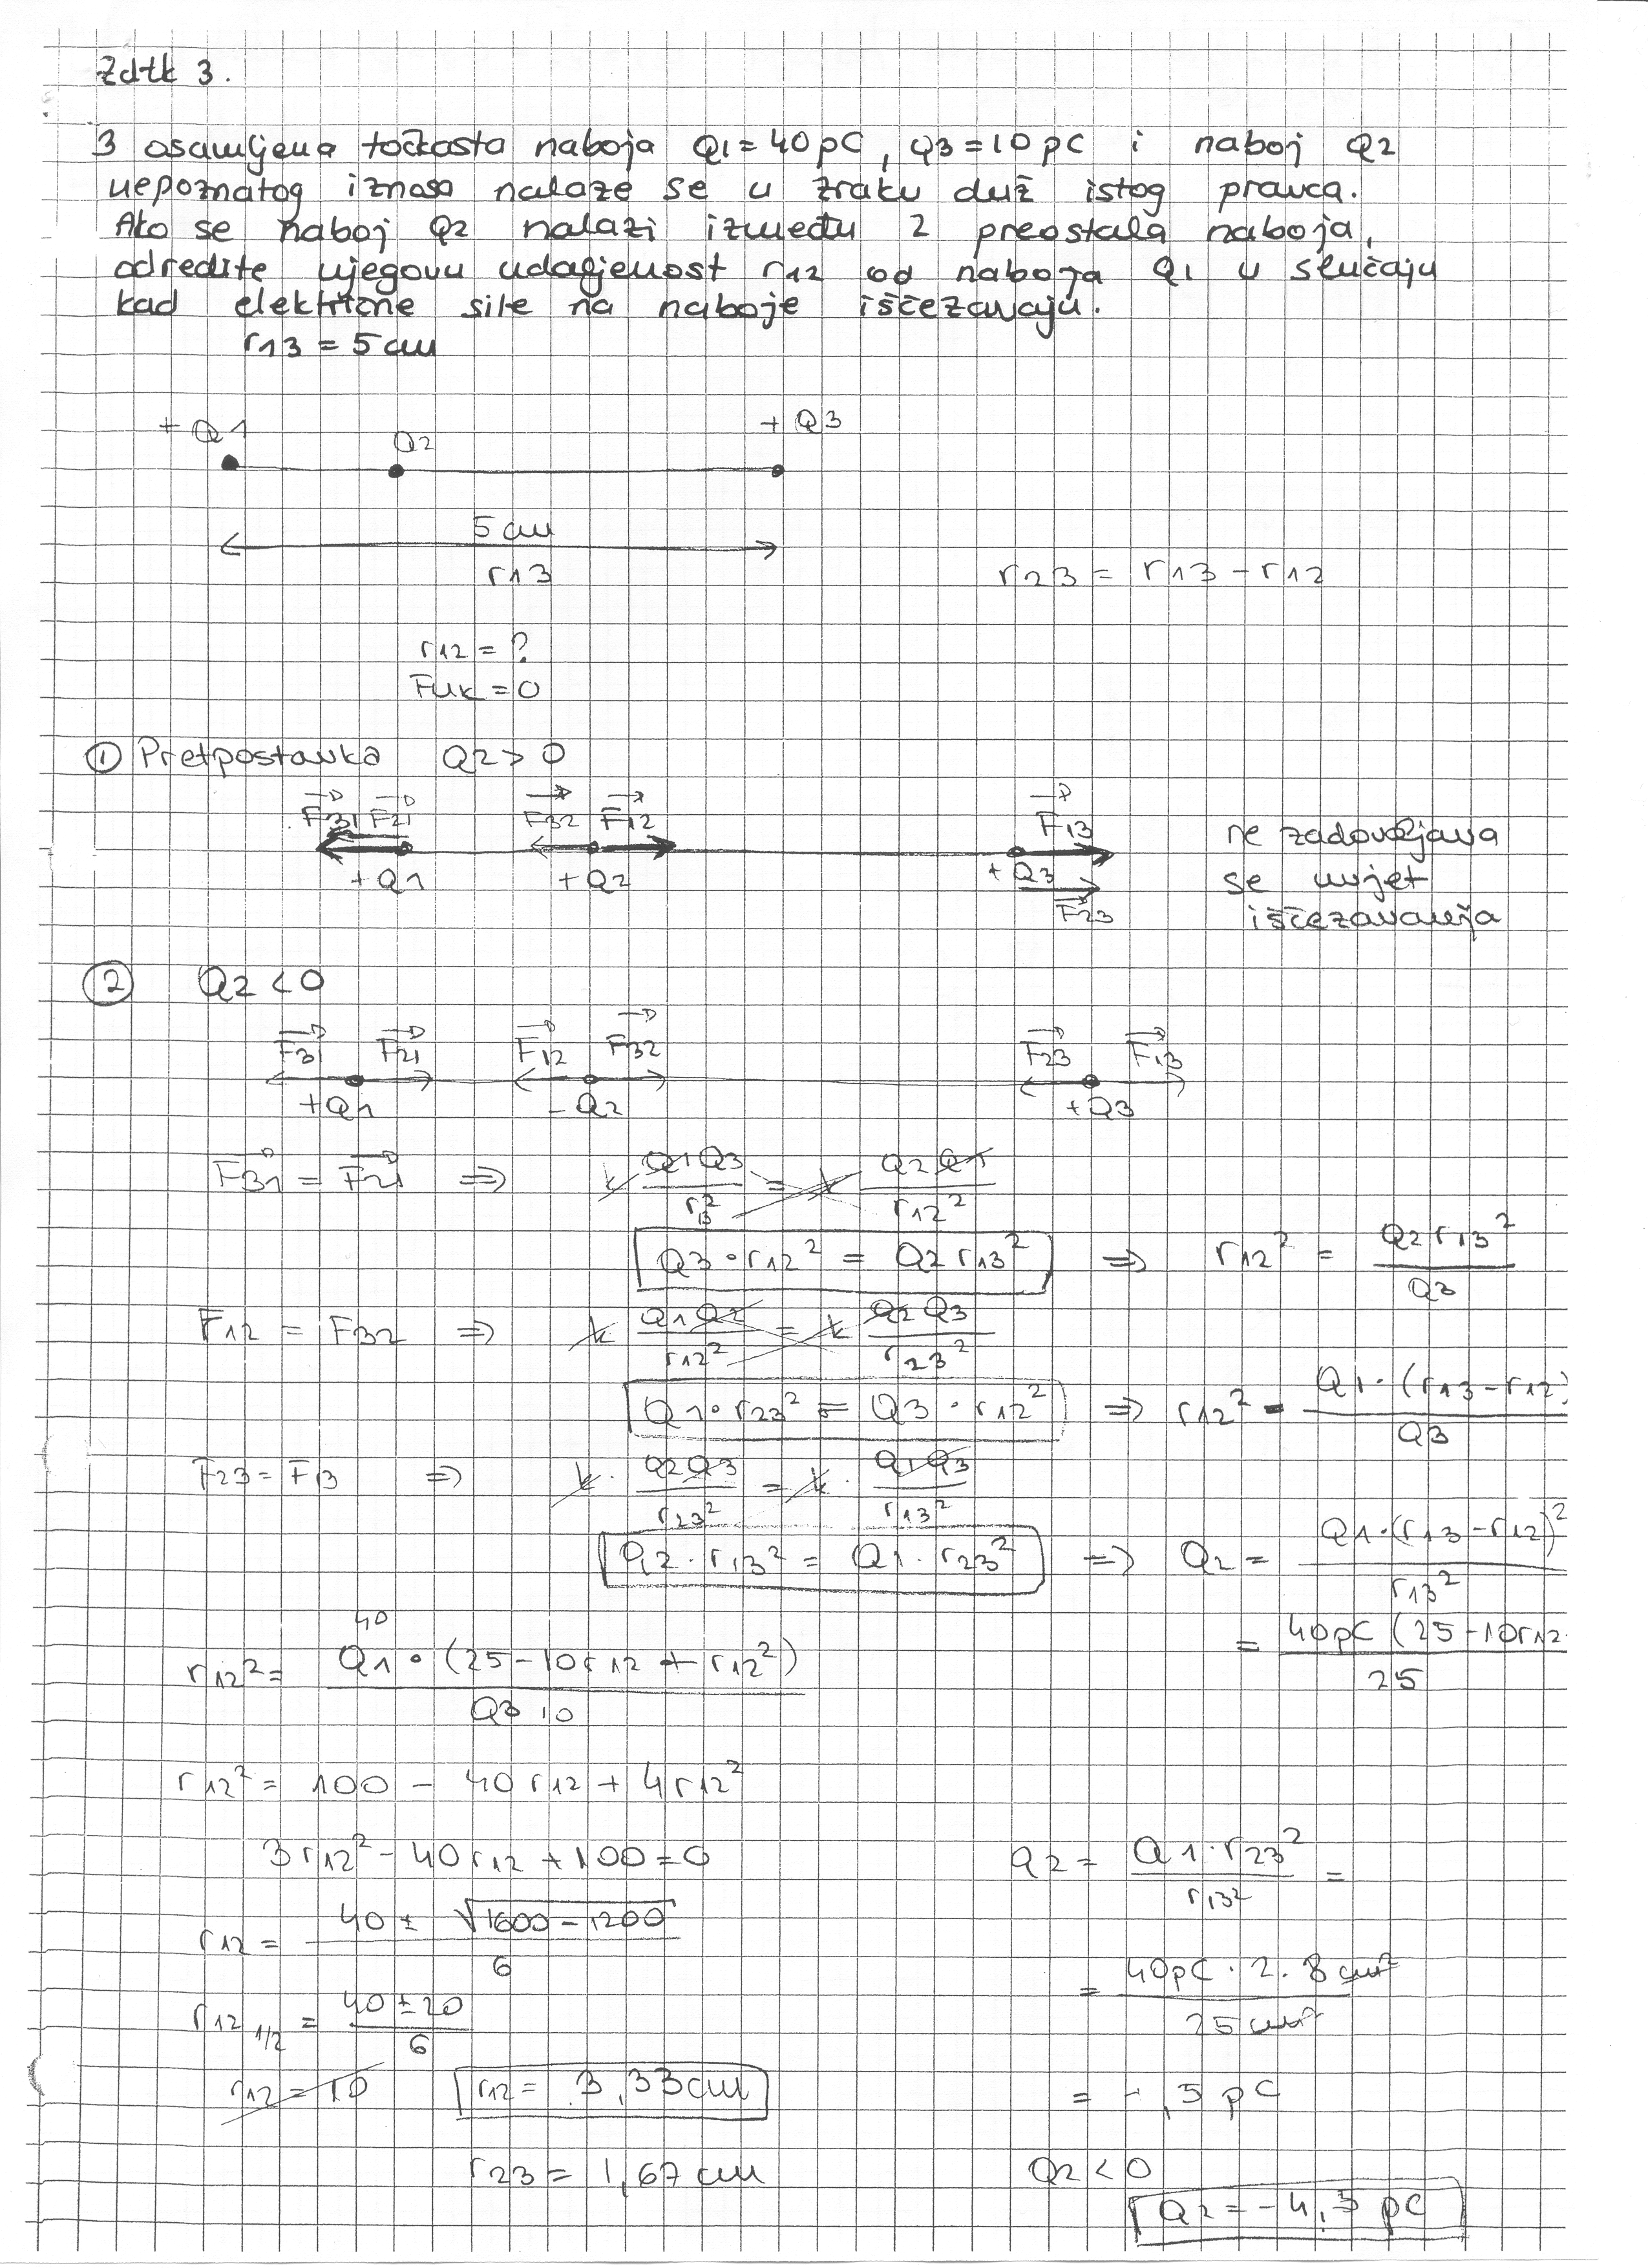 Zdtk 3.
3 osamljena točkasta naboja Q1 = 40 pC, Q3 = 10 pC i naboj Q2
nepoznatog iznosa nalaze se u zraku duž istog pravca.
Ako se naboj Q2 nalazi između 2 preostala naboja,
odredite njegovu udaljenost r12 od naboja Q1 u slučaju
kad električne sile na naboje iščezavaju.
r13 = 5 cm
+ Q1 Q2 + Q3
5 cm
r13
r23 = r13 - r12
r12 = ?
Fuk = 0
① Pretpostavka Q2 > 0
F31 F21 F32 F12 F13
+Q1 +Q2 +Q3
F23
ne zadovoljava
se uvjet
iščezavanja
② Q2 < 0
F31 F21 F12 F32 F23 F13
+Q1 -Q2 +Q3
F31 = F21 => k Q1Q3 / r13² = k Q2Q1 / r12²
Q3 · r12² = Q2 r13² => r12² = Q2 r13² / Q3
F12 = F32 => k Q1Q2 / r12² = k Q2Q3 / r23²
Q1 · r23² = Q3 · r12² => r12² = Q1 · (r13 - r12) / Q3
F23 = F13 => k · Q2Q3 / r23² = k · Q1Q3 / r13²
Q2 · r13² = Q1 · r23² => Q2 = Q1 · (r13 - r12)² / r13²
= 40pC (25 - 10r12 / 25
40
r12² = Q1 · (25 - 10r12 + r12²) / Q3 10
r12² = 100 - 40 r12 + 4r12²
3r12² - 40r12 + 100 = 0
r12 = 40 ± √1600 - 1200 / 6
r12 1/2 = 40 ± 20 / 6
r12 = 10 r12 = 3,33 cm
r23 = 1,67 cm
Q2 = Q1 · r23² / r13² =
= 40pC · 2.8 cm² / 25 cm²
= ,5 pC
Q2 < 0
Q2 = -4,5 pC